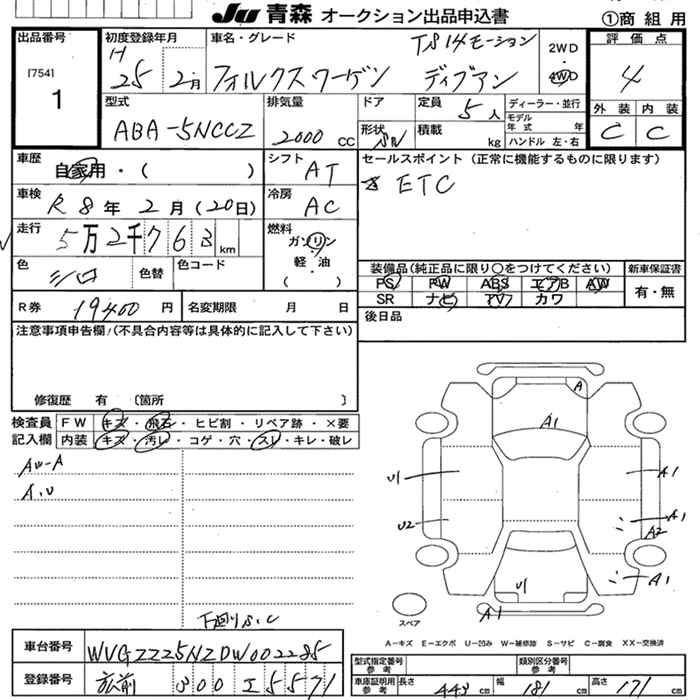 JU 青森 オークション出品申込書
①商 組 用
出品番号
[754]
1
初度登録年月
H
25 2月
車名・グレード
TSI 4モーション
フォルクスワーゲン ティグアン
2WD
4WD
評価点
4
外装 内装
C C
型式
ABA-5NCCZ
排気量
2000 CC
ドア
形状 SW
定員 5 人
積載 kg
ディーラー・並行
モデル年式 年
ハンドル 左・右
車歴
自家用・( )
シフト
AT
セールスポイント (正常に機能するものに限ります)
ETC
車検
R 8 年 2 月 (20日)
冷房
AC
走行
5万2千763 km
燃料
ガソリン
・
軽・油
( )
色
シロ
色替
色コード
装備品(純正品に限り○をつけてください)
新車保証書
PS PW ABS エアB AW
SR ナビ TV カワ
有・無
R券 19400 円
名変期限 月 日
後日品
注意事項申告欄/(不具合内容等は具体的に記入して下さい)
修復歴 有 〔箇所 〕
検査員記入欄
FW キズ・飛石・ヒビ割・リペア跡・×要
内装 キズ・汚レ・コゲ・穴・スレ・キレ・破レ
AW-A
A.U
下廻りS.C
A
A1
U1
A1
U2
A1
A2
U1
A1
A1
スペア
A－キズ E－エクボ U－凹み W－補修跡 S－サビ C－腐食 XX－交換済
車台番号
WVGZZZ5NZDW002285
登録番号
弘前 300 エ 5571
型式指定番号 参考
類別区分番号 参考
車庫証明用 参考
長さ 443 cm
幅 181 cm
高さ 171 cm